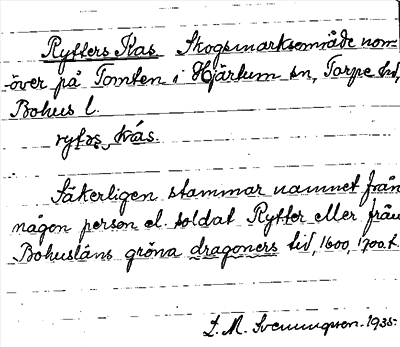 Rytters Kas Skogsmarksområde nom
över på Tomten i Hjärtum sn, Torpe hd,
Bohus l.
rytəs, kás.
Säkerligen stammar namnet från
någon person el. soldat Rytter eller från
Bohusläns gröna dragoners tid, 1600, 1700.t.
L. M. Svenungson. 1935.